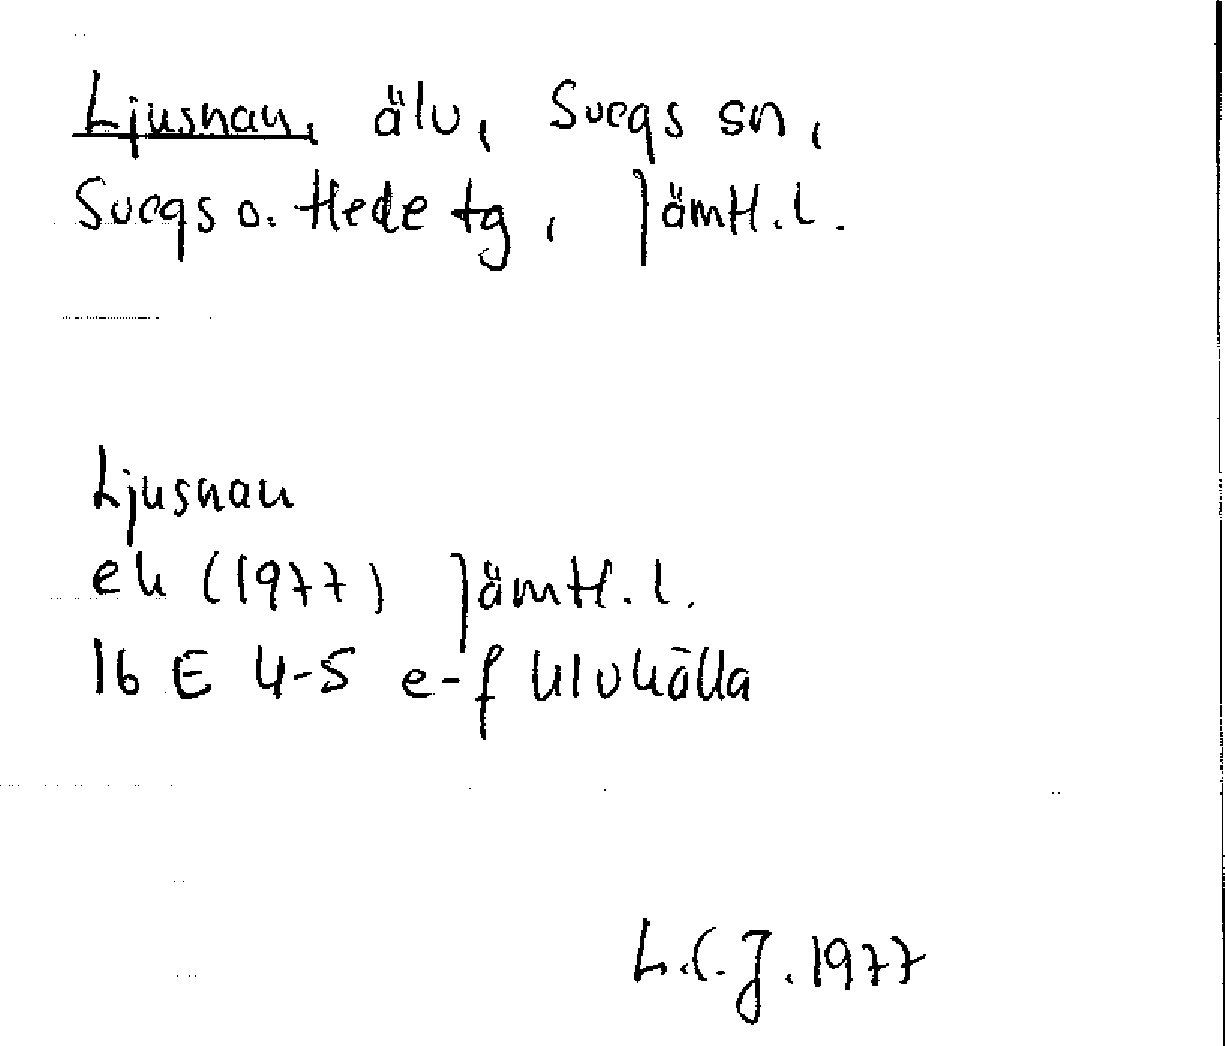 Ljusnan, älv, Svegs sn,
Svegs o. Hede tg, Jämtl. l.
Ljusnan
ek (1977) Jämtl. l.
16 E 4-5 e-f Ulvkälla
L.C.J. 1977